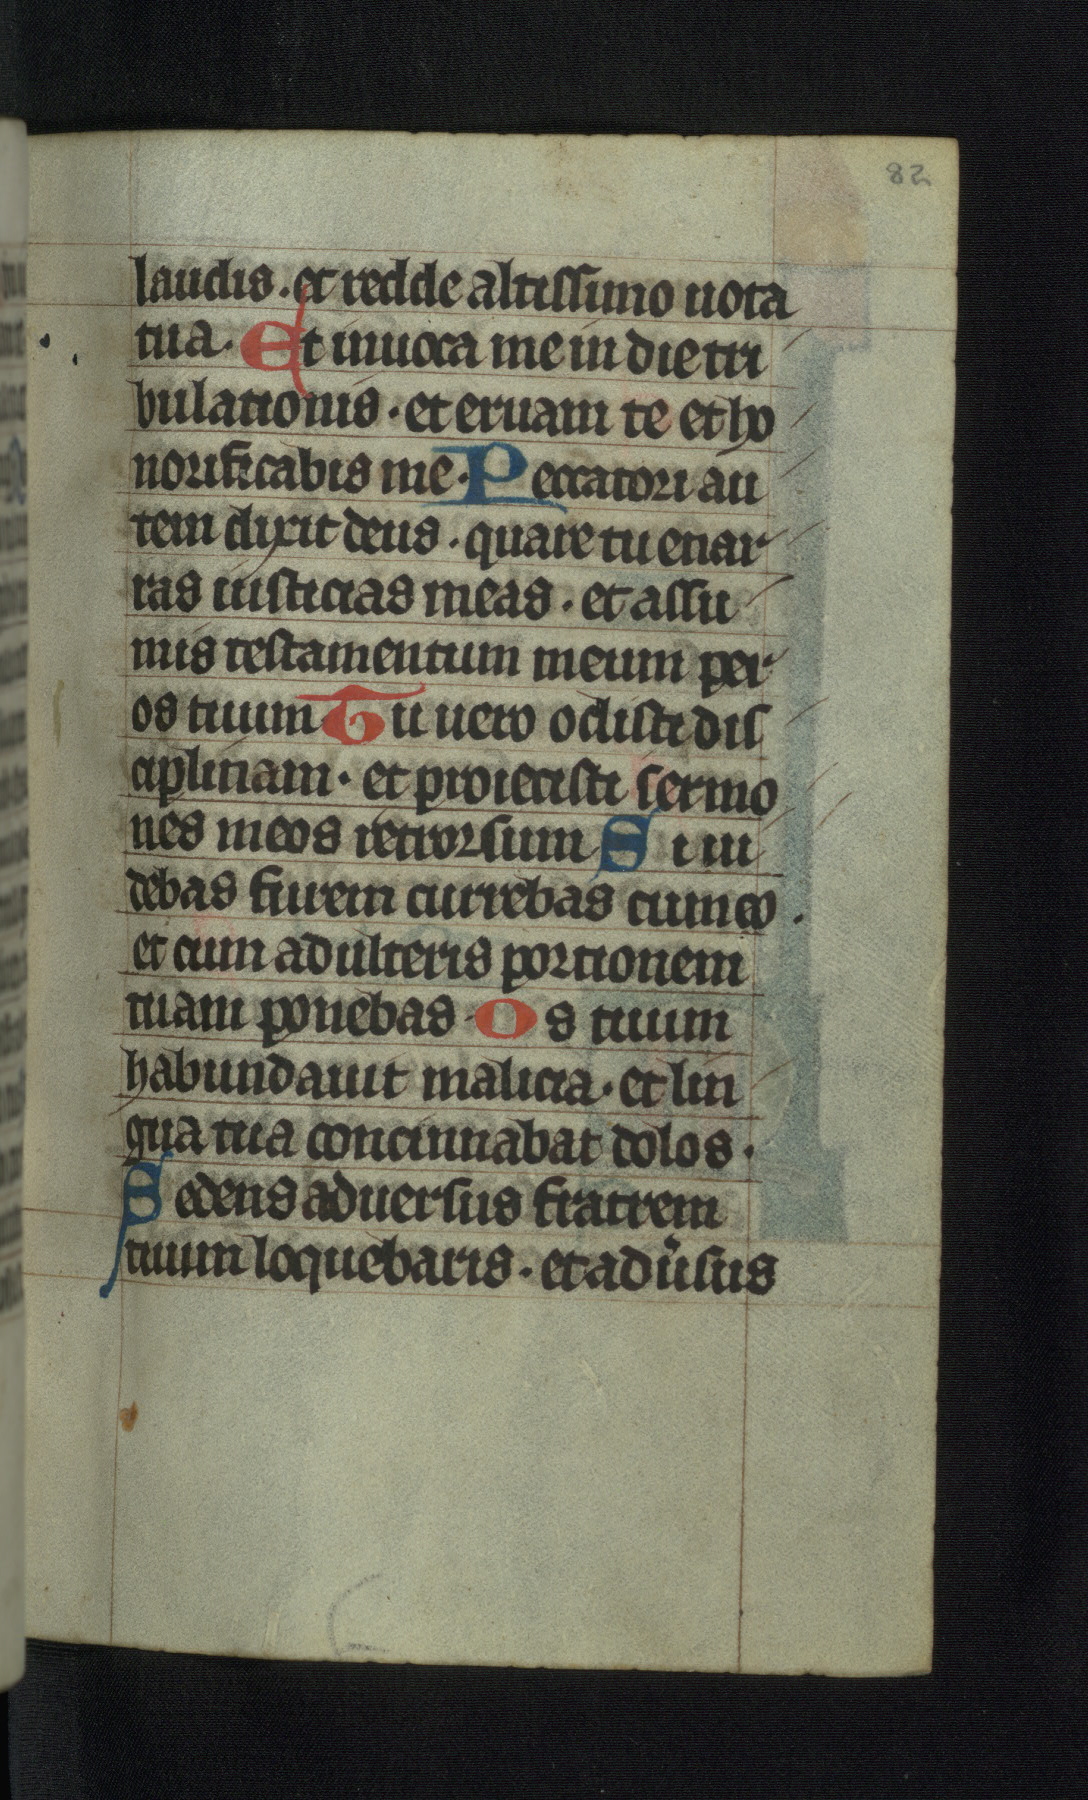 82
laudis. et redde altissimo uota
tua. Et inuoca me in die tri
bulationis. et eruam te et ho
norificabis me. Peccatori au
tem dixit deus. quare tu enar
ras iusticias meas. et assu
mis testamentum meum per
os tuum Tu uero odisti dis
ciplinam. et proiecisti sermo
nes meos retrorsum Si ui
debas furem currebas cum eo.
et cum adulteris portionem
tuam ponebas. Os tuum
habundauit malicia. et lin
gua tua concinnabat dolos.
Sedens aduersus fratrem
tuum loquebaris. et adu'sus